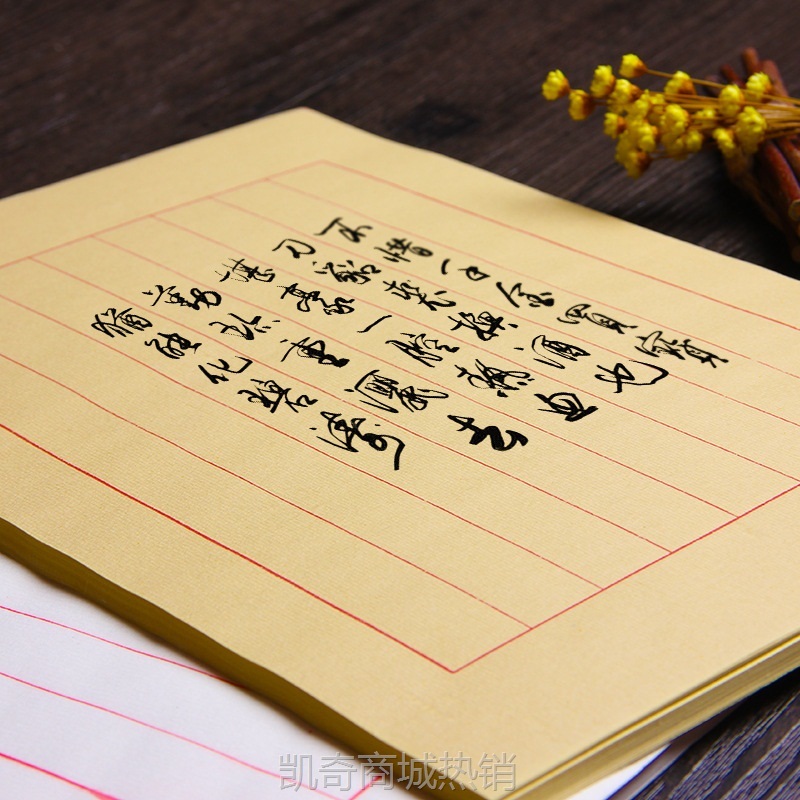 不惜千金買寶
刀貂裘換酒也
堪豪一腔熱血
勤珍重灑去
猶能化碧濤
凯奇商城热销